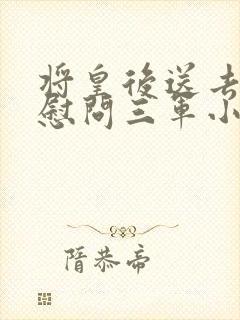 将皇後送去
慰問三軍小
隋恭帝